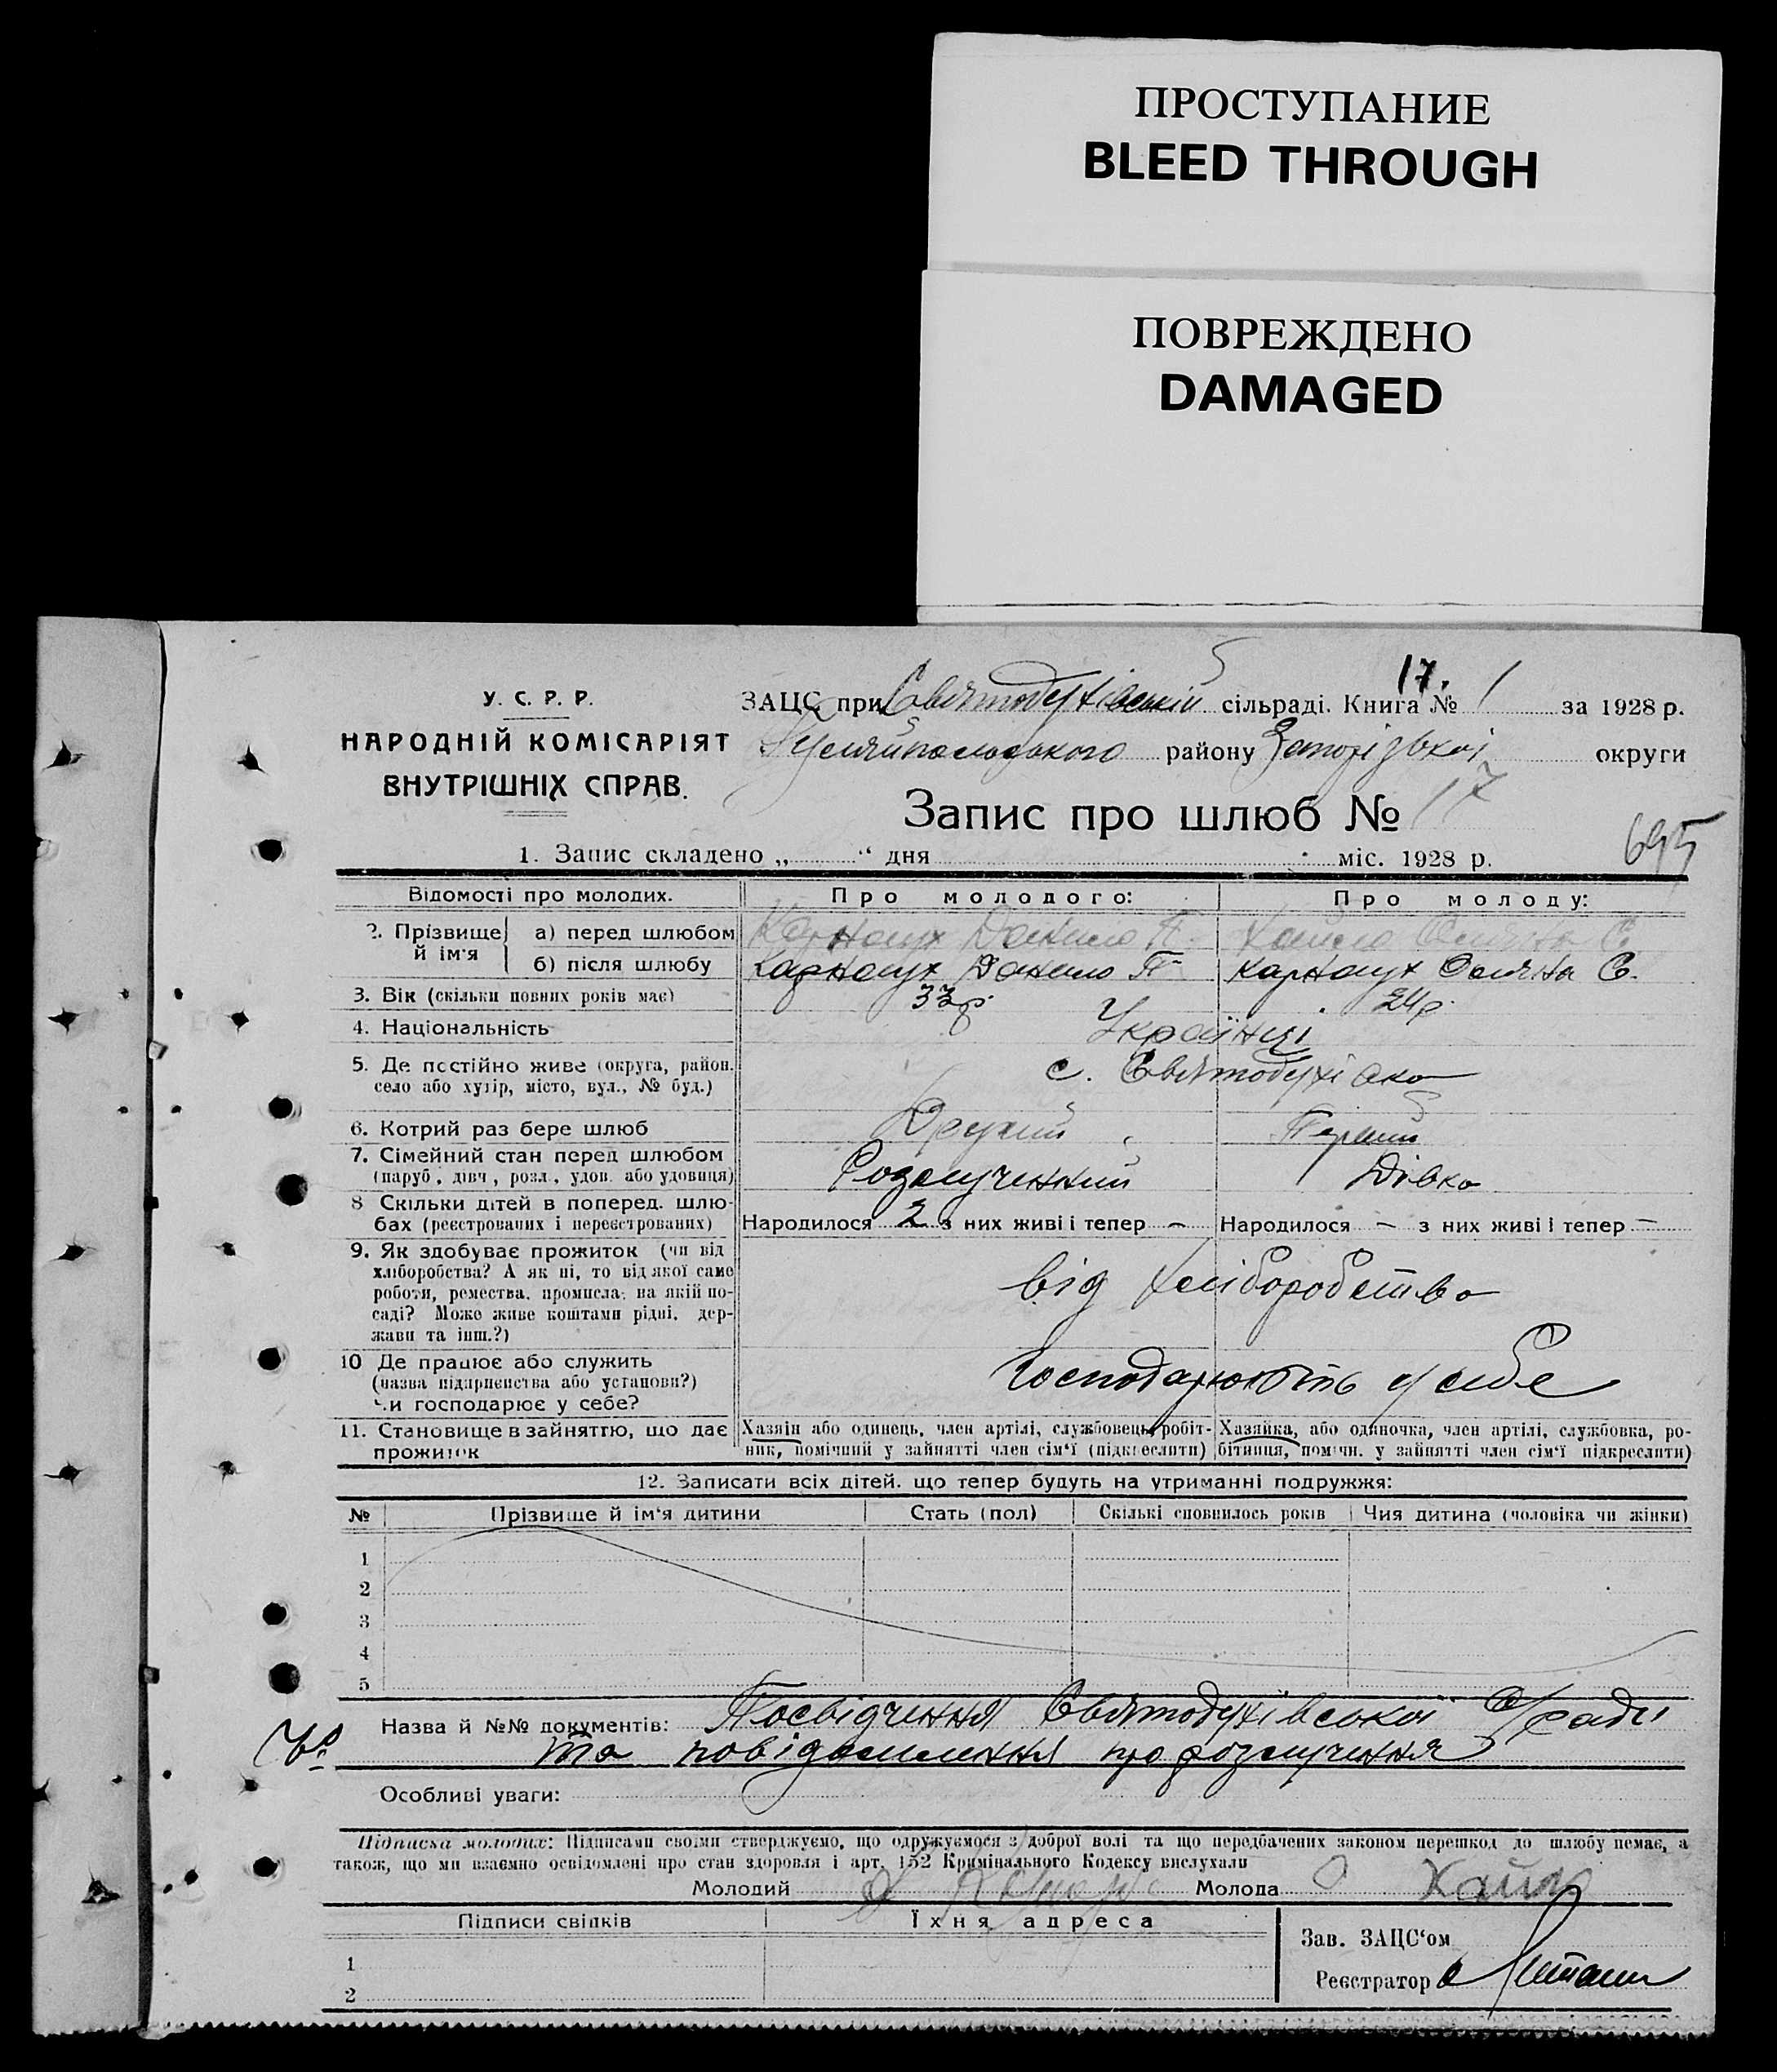 ПРОСТУПАНИЕ
BLEED THROUGH
ПОВРЕЖДЕНО
DAMAGED
У. С. Р. Р.
НАРОДНІЙ КОМІСАРІЯТ
ВНУТРІШНІХ СПРАВ.
17.
ЗАЦС при Святодухівській сільраді. Книга № 1 за 1928 р.
Гуляйпольського району Запорізької округи
Запис про шлюб № 17
695
1. Запис складено „ “ дня міс. 1928 р.
Відомості про молодих. Про молодого: Про молоду:
2. Прізвище й ім'я а) перед шлюбом Карнаух Данило П. Хайло Оляна С.
б) після шлюбу Карнаух Данило П. Карнаух Оляна С.
3. Вік (скільки повних років має) 33 р. 24 р.
4. Національність Українці
5. Де постійно живе (округа, район, с. Святодухівка
село або хутір, місто, вул., № буд.)
6. Котрий раз бере шлюб Другий Перший
7. Сімейний стан перед шлюбом Розлучений Дівка
(паруб., дівч., розл., удов. або удовиця)
8 Скільки дітей в поперед. шлю-
бах (реєстрованих і нереєстрованих) Народилося 2 з них живі і тепер – Народилося – з них живі і тепер –
9. Як здобуває прожиток (чи від
хліборобства? А як ні, то від якої саме від хліборобства
роботи, ремества, промисла; на якій по-
саді? Може живе коштами рідні, дер-
жави та інш.?)
10 Де працює або служить
(назва підприенства або установи?) Господарюють у себе
чи господарює у себе?
11. Становище в зайняттю, що дає Хазяін або одинець, член артілі, службовець, робіт- Хазяйка, або одиночка, член артілі, службовка, ро-
прожиток ник, помічний у зайнятті член сім'ї (підкреслити) бітниця, помічн. у зайнятті член сім'ї підкреслити)
12. Записати всіх дітей, що тепер будуть на утриманні подружжя:
№ Прізвище й ім'я дитини Стать (пол) Скількі сповнилось років Чия дитина (чоловіка чи жінки)
1
2
3
4
5
Назва й №№ документів: Посвідчення Святодухівської С/ради
та повідомлення про розлучення
Особливі уваги:
Підписка молодих: Підписами своїми стверджуємо, що одружуємося з доброї волі та що передбачених законом перешкод до шлюбу немає, а
також, що ми взаємно освідомлені про стан здоровля і арт. 152 Кримінального Кодексу вислухали
Молодий Молода Хайло
Підписи свідків Їхня адреса
Зав. ЗАЦС'ом
1
Реєстратор
2